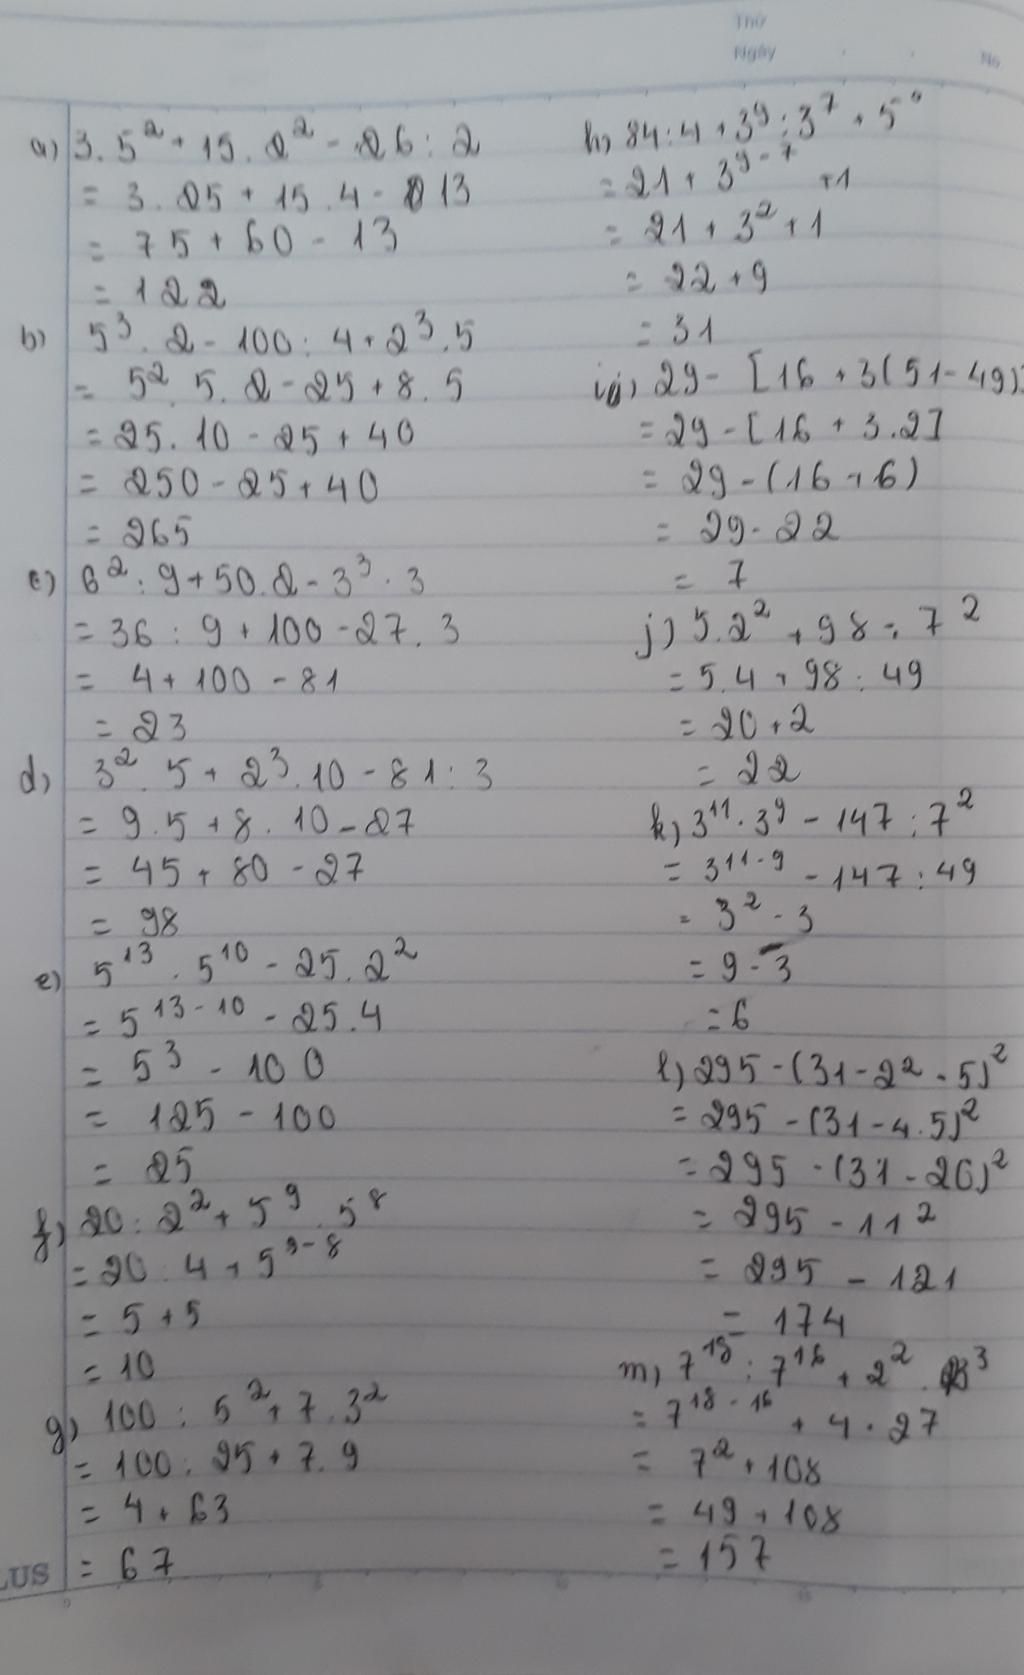 Thứ
Ngày
No
a) 3.5² + 15.2² - 26 : 2
= 3.25 + 15.4 - 13
= 75 + 60 - 13
= 122
b) 5³.2 - 100 : 4 + 2³.5
= 5².5.2 - 25 + 8.5
= 25.10 - 25 + 40
= 250 - 25 + 40
= 265
c) 6² : 9 + 50.2 - 3³.3
= 36 : 9 + 100 - 27.3
= 4 + 100 - 81
= 23
d) 3².5 + 2³.10 - 81 : 3
= 9.5 + 8.10 - 27
= 45 + 80 - 27
= 98
e) 5¹³.5¹⁰ - 25.2²
= 5¹³⁻¹⁰ - 25.4
= 5³ - 100
= 125 - 100
= 25
f) 20 : 2² + 5⁹.5⁸
= 20 : 4 + 5⁹⁻⁸
= 5 + 5
= 10
g) 100 : 5² + 7.3²
= 100 : 25 + 7.9
= 4 + 63
= 67
h) 84 : 4 + 3⁹ : 3⁷ + 5⁰
= 21 + 3⁹⁻⁷ + 1
= 21 + 3² + 1
= 22 + 9
= 31
i) 29 - [16 + 3(51 - 49)]
= 29 - [16 + 3.2]
= 29 - (16 + 6)
= 29 - 22
= 7
j) 5.2² + 98 : 7²
= 5.4 + 98 : 49
= 20 + 2
= 22
k) 3¹¹.3⁹ - 147 : 7²
= 3¹¹⁻⁹ - 147 : 49
= 3² - 3
= 9 - 3
= 6
l) 295 - (31 - 2².5)²
= 295 - (31 - 4.5)²
= 295 - (31 - 20)²
= 295 - 11²
= 295 - 121
= 174
m) 7¹⁸ : 7¹⁶ + 2².3³
= 7¹⁸⁻¹⁶ + 4.27
= 7² + 108
= 49 + 108
= 157
LUS